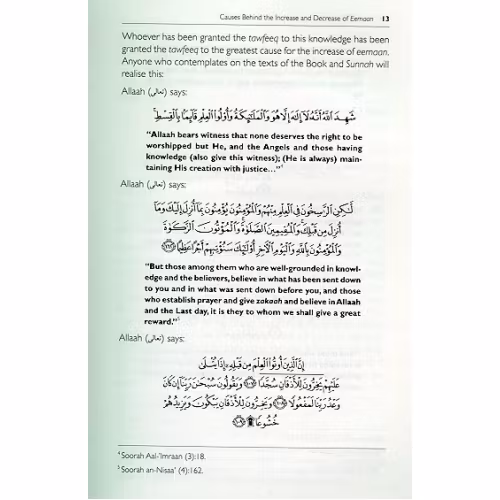 Causes Behind the Increase and Decrease of Eemaan 13
Whoever has been granted the tawfeeq to this knowledge has been
granted the tawfeeq to the greatest cause for the increase of eemaan.
Anyone who contemplates on the texts of the Book and Sunnah will
realise this:
Allaah (تعالى) says:
شَهِدَ اللَّهُ أَنَّهُ لَا إِلَٰهَ إِلَّا هُوَ وَالْمَلَائِكَةُ وَأُولُوا الْعِلْمِ قَائِمًا بِالْقِسْطِ
“Allaah bears witness that none deserves the right to be
worshipped but He, and the Angels and those having
knowledge (also give this witness); (He is always) main-
taining His creation with justice...”⁴
Allaah (تعالى) says:
لَّٰكِنِ الرَّاسِخُونَ فِي الْعِلْمِ مِنْهُمْ وَالْمُؤْمِنُونَ يُؤْمِنُونَ بِمَا أُنزِلَ إِلَيْكَ وَمَا
أُنزِلَ مِن قَبْلِكَ وَالْمُقِيمِينَ الصَّلَاةَ وَالْمُؤْتُونَ الزَّكَاةَ
وَالْمُؤْمِنُونَ بِاللَّهِ وَالْيَوْمِ الْآخِرِ أُولَٰئِكَ سَنُؤْتِيهِمْ أَجْرًا عَظِيمًا ﴿١٦٢﴾
“But those among them who are well-grounded in knowl-
edge and the believers, believe in what has been sent down
to you and in what was sent down before you, and those
who establish prayer and give zakaah and believe in Allaah
and the Last day, it is they to whom we shall give a great
reward.”⁵
Allaah (تعالى) says:
إِنَّ الَّذِينَ أُوتُوا الْعِلْمَ مِن قَبْلِهِ إِذَا يُتْلَىٰ
عَلَيْهِمْ يَخِرُّونَ لِلْأَذْقَانِ سُجَّدًا ﴿١٠٧﴾ وَيَقُولُونَ سُبْحَانَ رَبِّنَا إِن كَانَ
وَعْدُ رَبِّنَا لَمَفْعُولًا ﴿١٠٨﴾ وَيَخِرُّونَ لِلْأَذْقَانِ يَبْكُونَ وَيَزِيدُهُمْ
خُشُوعًا ۩ ﴿١٠٩﴾
⁴ Soorah Aal-'Imraan (3):18.
⁵ Soorah an-Nisaa' (4):162.